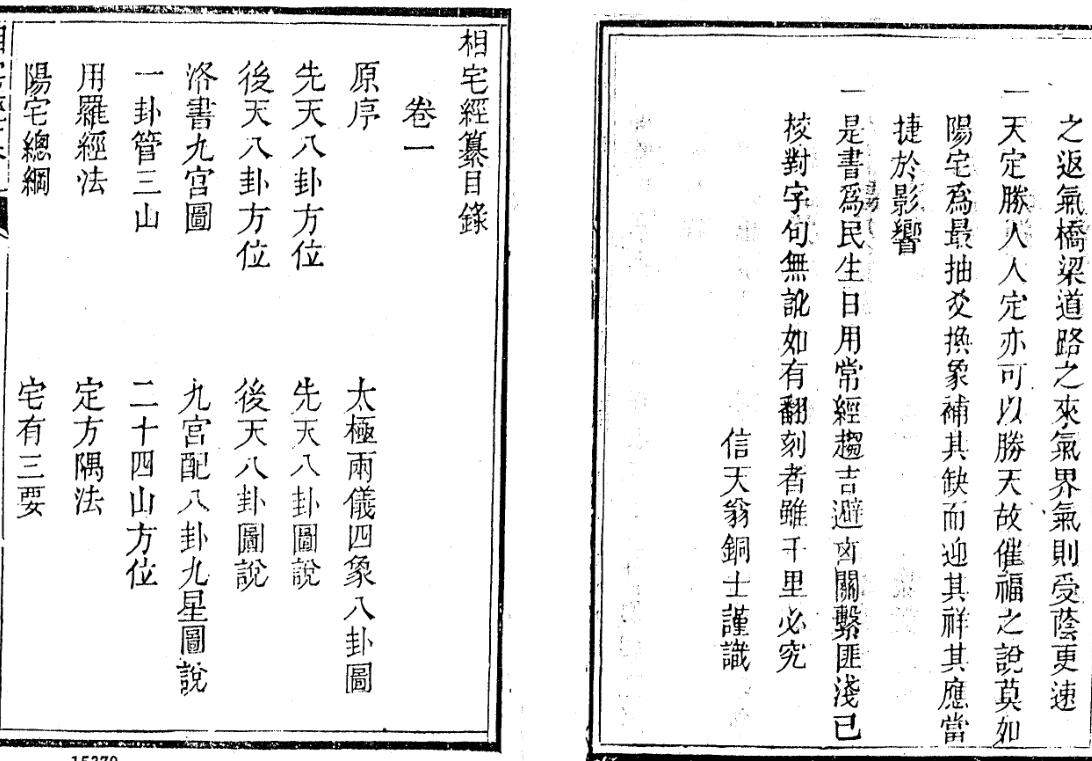 之返氣橋梁道路之來氣界氣則受蔭更速
一天定勝人人定亦可以勝天故催福之說莫如
陽宅爲最抽爻換象補其缺而迎其祥其應當
捷於影響
一是書爲民生日用常經趨吉避凶關繫匪淺已
校對字句無訛如有翻刻者雖千里必究
信天翁銅士謹識
相宅經纂目錄
卷一
原序 太極兩儀四象八卦圖
先天八卦方位 先天八卦圖說
後天八卦方位 後天八卦圖說
洛書九宮圖 九宮配八卦九星圖說
一卦管三山 二十四山方位
用羅經法 定方隅法
陽宅總綱 宅有三要
15379